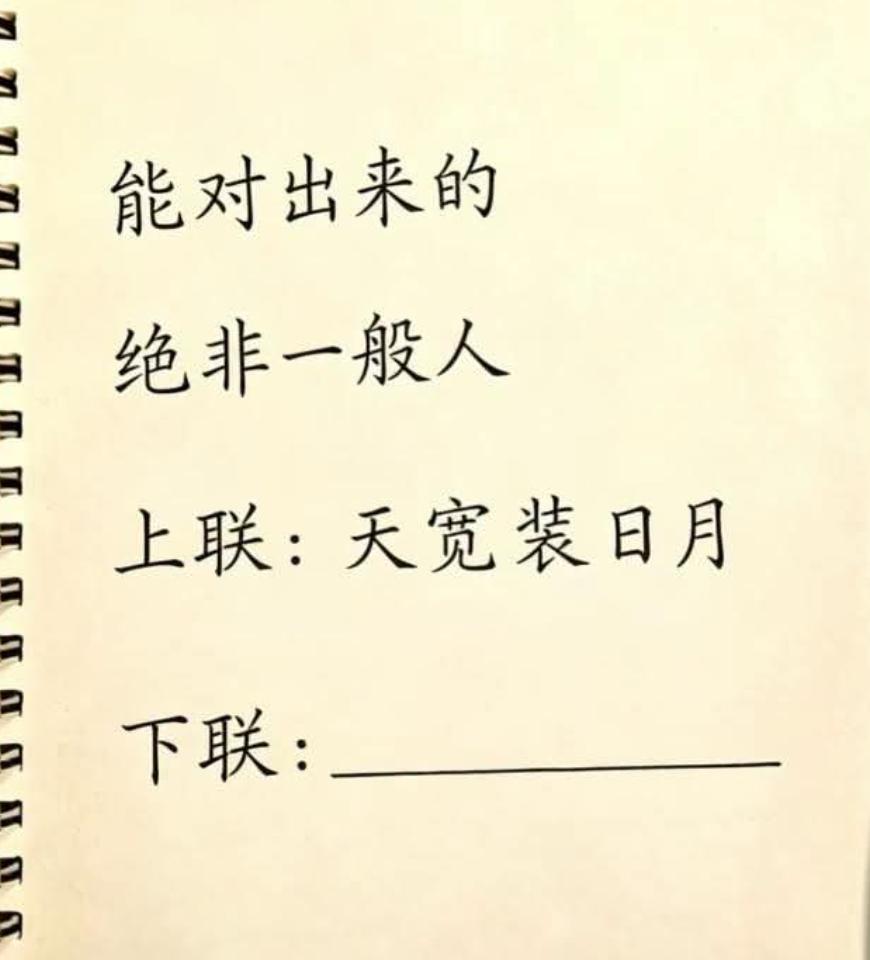 能对出来的
绝非一般人
上联：天宽装日月
下联：